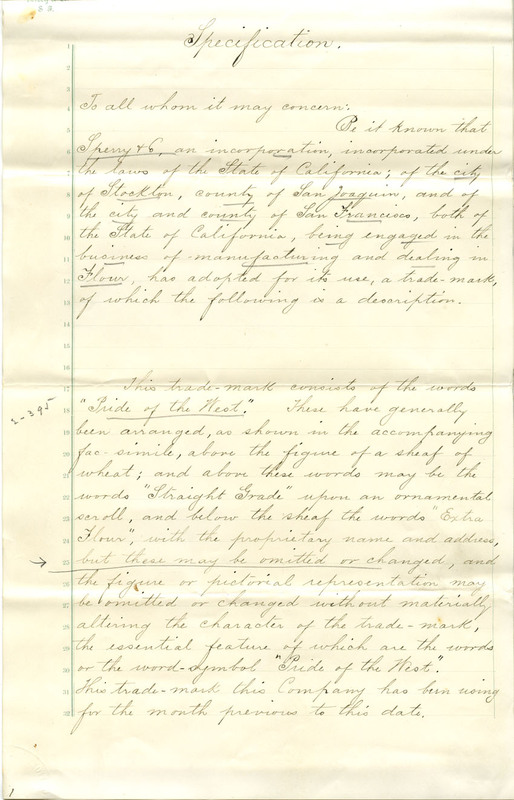 Specification.
1
2
3
4
5
6
7
8
9
10
11
12
13
14
15
16
17
18
19
20
21
22
23
24
25
26
27
28
29
30
31
32
To all whom it may concern:
Be it known that
Sperry & Co. an incorporation, incorporated under
the laws of the State of California; of the city
of Stockton, county of San Joaquin, and of
the city and county of San Francisco, both of
the State of California, being engaged in the
business of manufacturing and dealing in
Flour, has adopted for its use, a trade-mark,
of which the following is a description.
This trade-mark consists of the words
"Pride of the West". These have generally
been arranged, as shown in the accompanying
fac-simile, above the figure of a sheaf of
wheat; and above these words may be the
words "Straight Grade" upon an ornamental
scroll, and below the sheaf the words "Extra
Flour", with the proprietary name and address,
but these may be omitted or changed, and
the figure or pictorial representation may
be omitted or changed without materially
altering the character of the trade-mark,
the essential feature of which are the words
or the word-symbol "Pride of the West".
This trade-mark this Company has been using
for the month previous to this date.
2-395
1